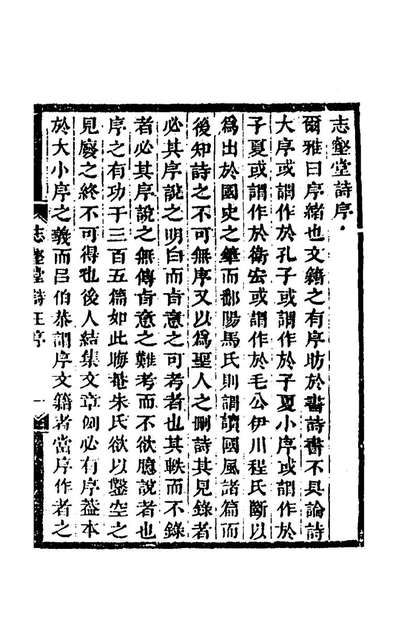 志壑堂詩序
爾雅曰序緒也文籍之有序昉於書詩書不具論詩
大序或謂作於孔子或謂作於子夏小序或謂作於
子夏或謂作於衛宏或謂作於毛公伊川程氏斷以
爲出於國史之筆而鄱陽馬氏則謂讀國風諸篇而
後知詩之不可無序又以爲聖人之刪詩其見錄者
必其序說之明白而旨意之可考者也其軼而不錄
者必其序說之無傳旨意之難考而不欲臆說者也
序之有功于三百五篇如此晦菴朱氏欲以鑿空之
見廢之終不可得也後人結集文章例必有序蓋本
於大小序之義而呂伯恭謂序文籍者當序作者之
志壑堂詩王序 一